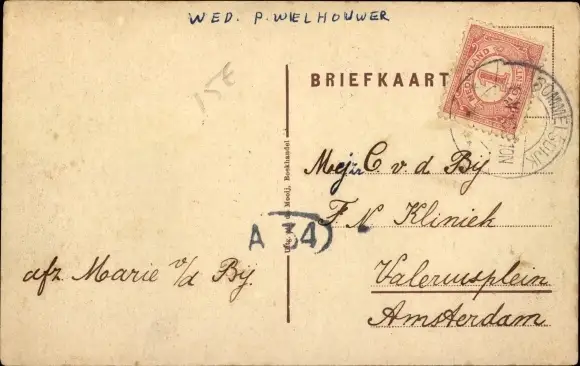 WED. P. WIELHOUWER
15€
BRIEFKAART
NEDERLAND
1
CENT
SOMMELSDIJK
Mejr C. v. d. Bij
F. N. Kliniek
Valeriusplein
Amsterdam
A 34
de Mooij, Boekhandel
afz. Marie v/d Bij.